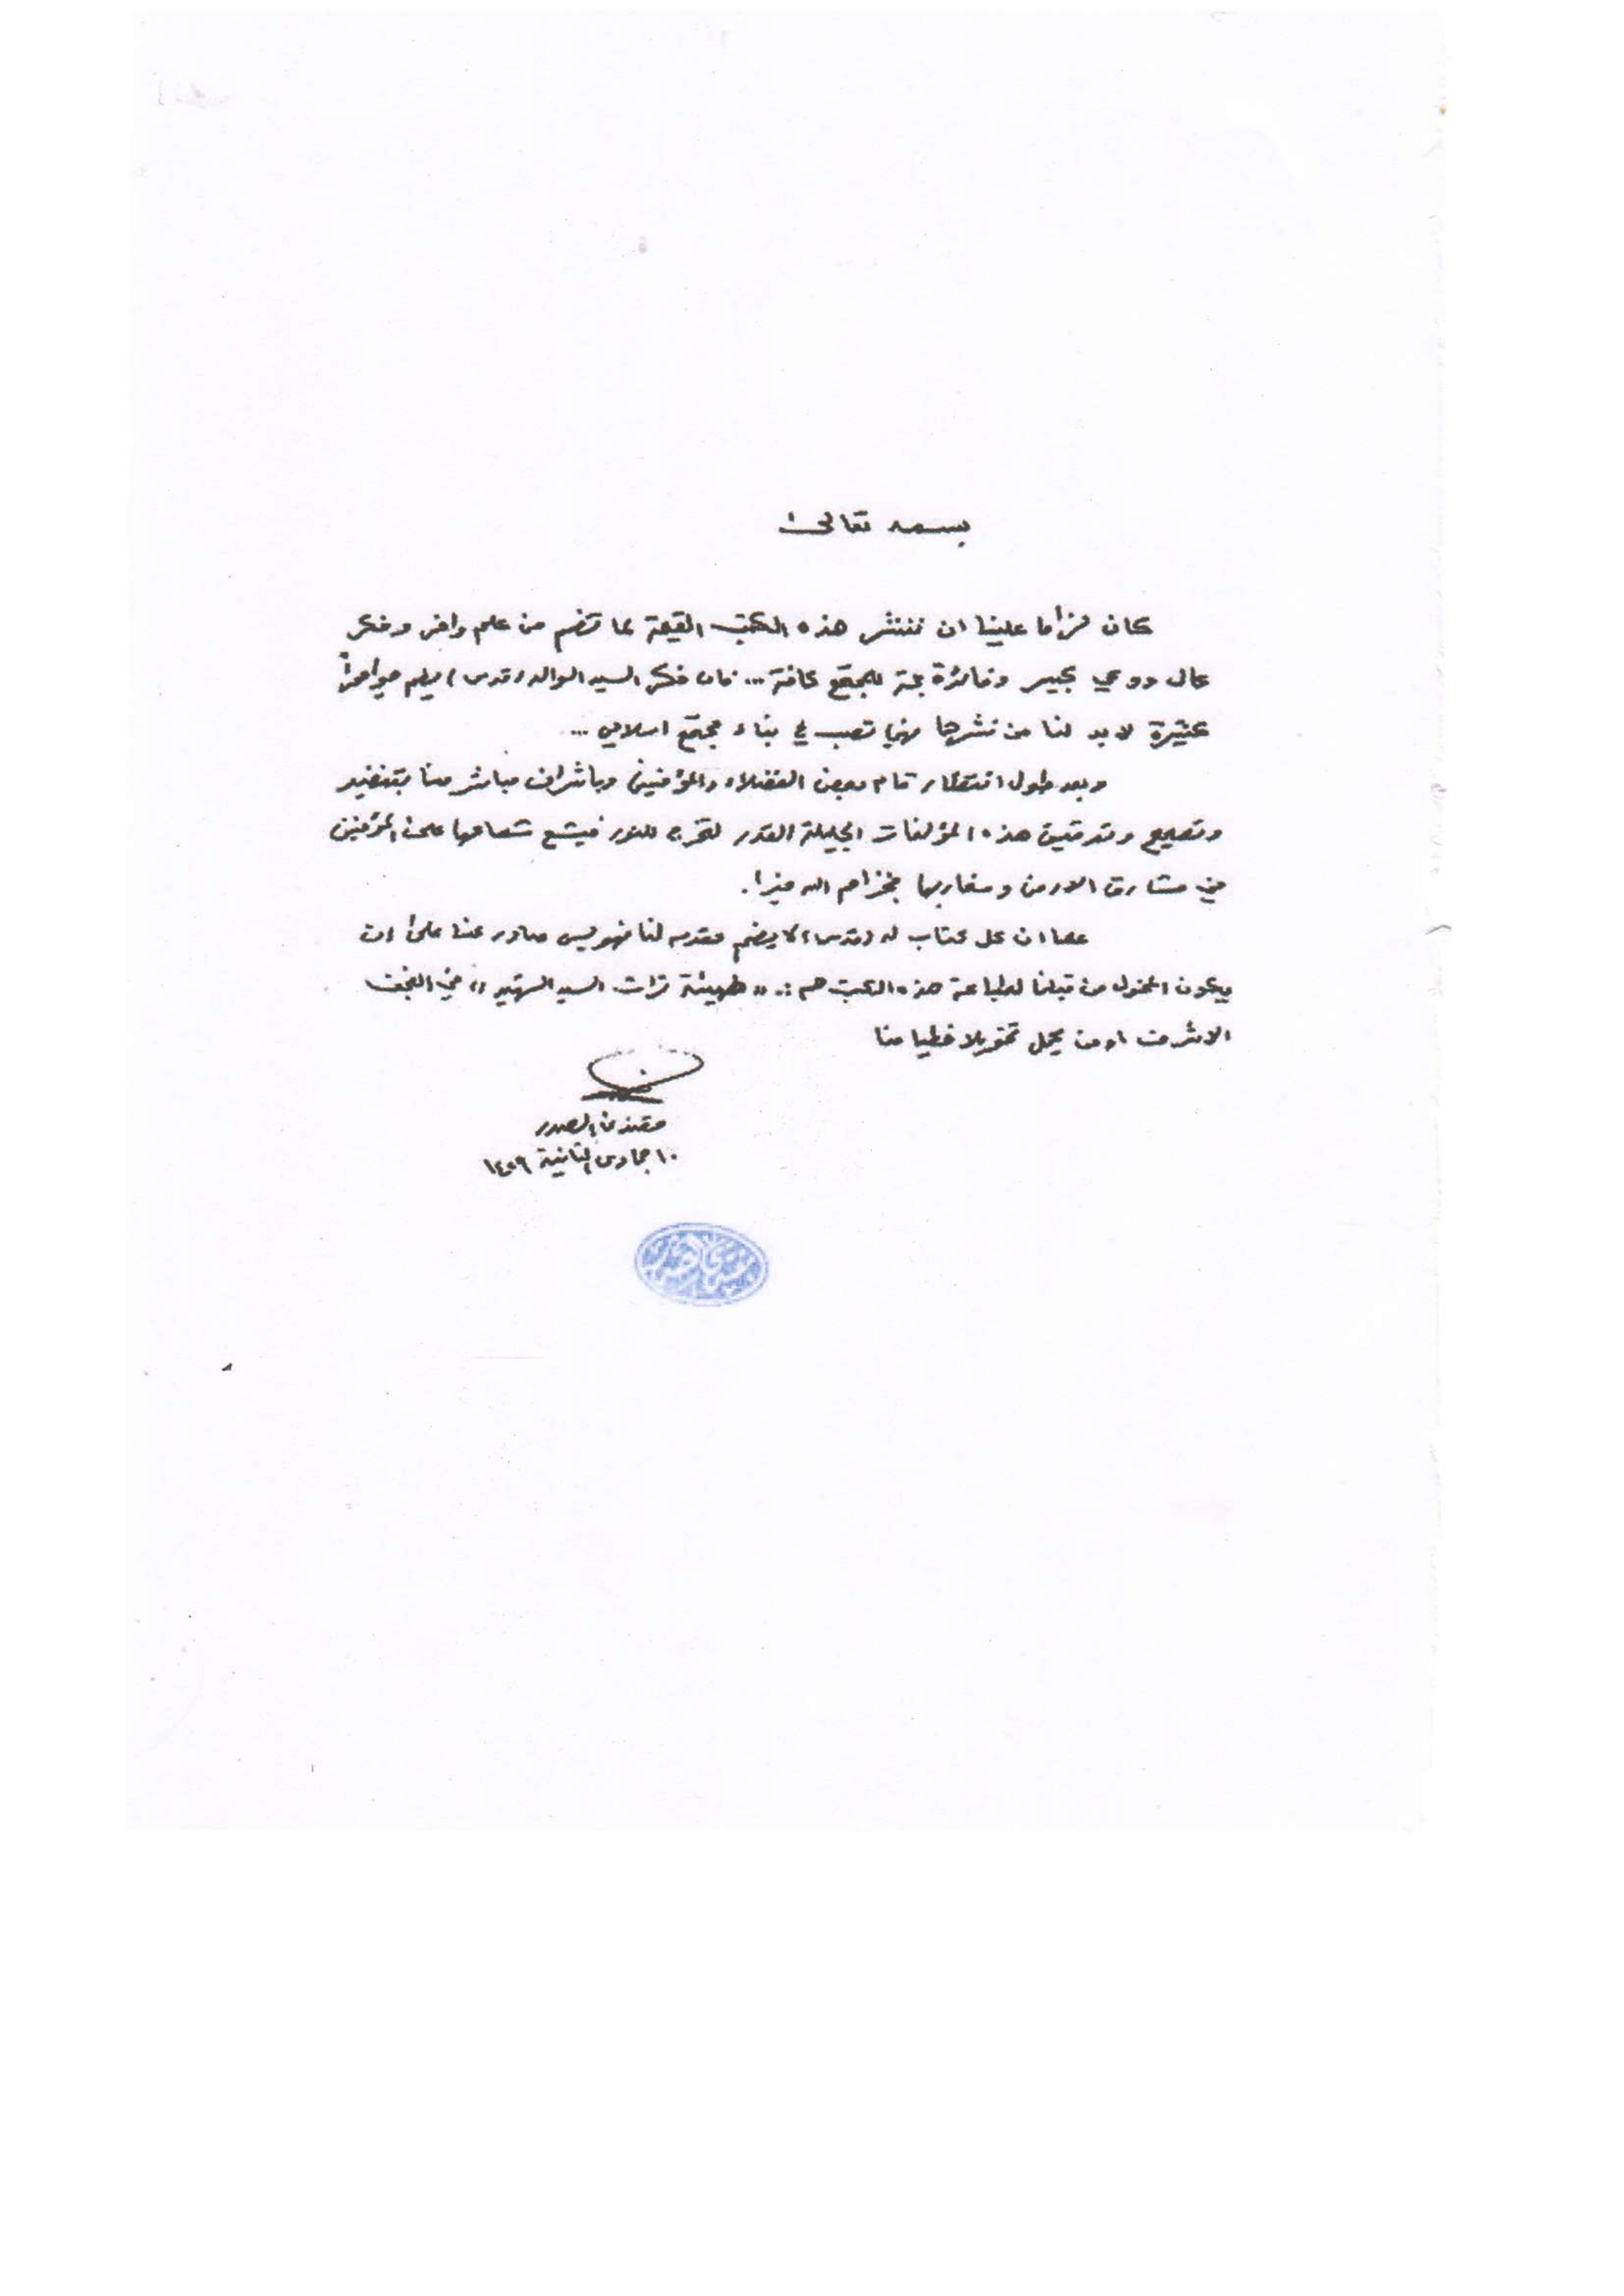 بسمه تعالى
كان لزاما علينا ان ننشر هذه الكتب القيمة لما تضم من علم وافر وفكر
عال ووعي كبير وفائدة جمة للمجتمع كافة ... فان فكر السيد الوالد (قدس) يضم
كثيرة لابد لنا من نشرها فهي تصب في بناء مجتمع اسلامي ...
وبعد طول انتظار قام بعض الفضلاء والمؤمنين وباشراف مباشر منا بتنضيد
وتصحيح وتدقيق هذه المؤلفات الجليلة القدر لتخرج للنور فيشع شعاعها على المؤمنين
في مشارق الارض ومغاربها فجزاهم الله خيرا.
كما ان كل كتاب له (قدس) لا يضم مقدمه لنا فهو ليس صادر عنا على ان
يكون المخول من قبلنا لطباعة هذه الكتب هم :. « هيئة تراث السيد الشهيد » في النجف
الاشرف او من يحمل تخويلا خطيا منا
مقتدى الصدر
١٠ جمادى الثانية ١٤٢٩
مقتدى الصدر